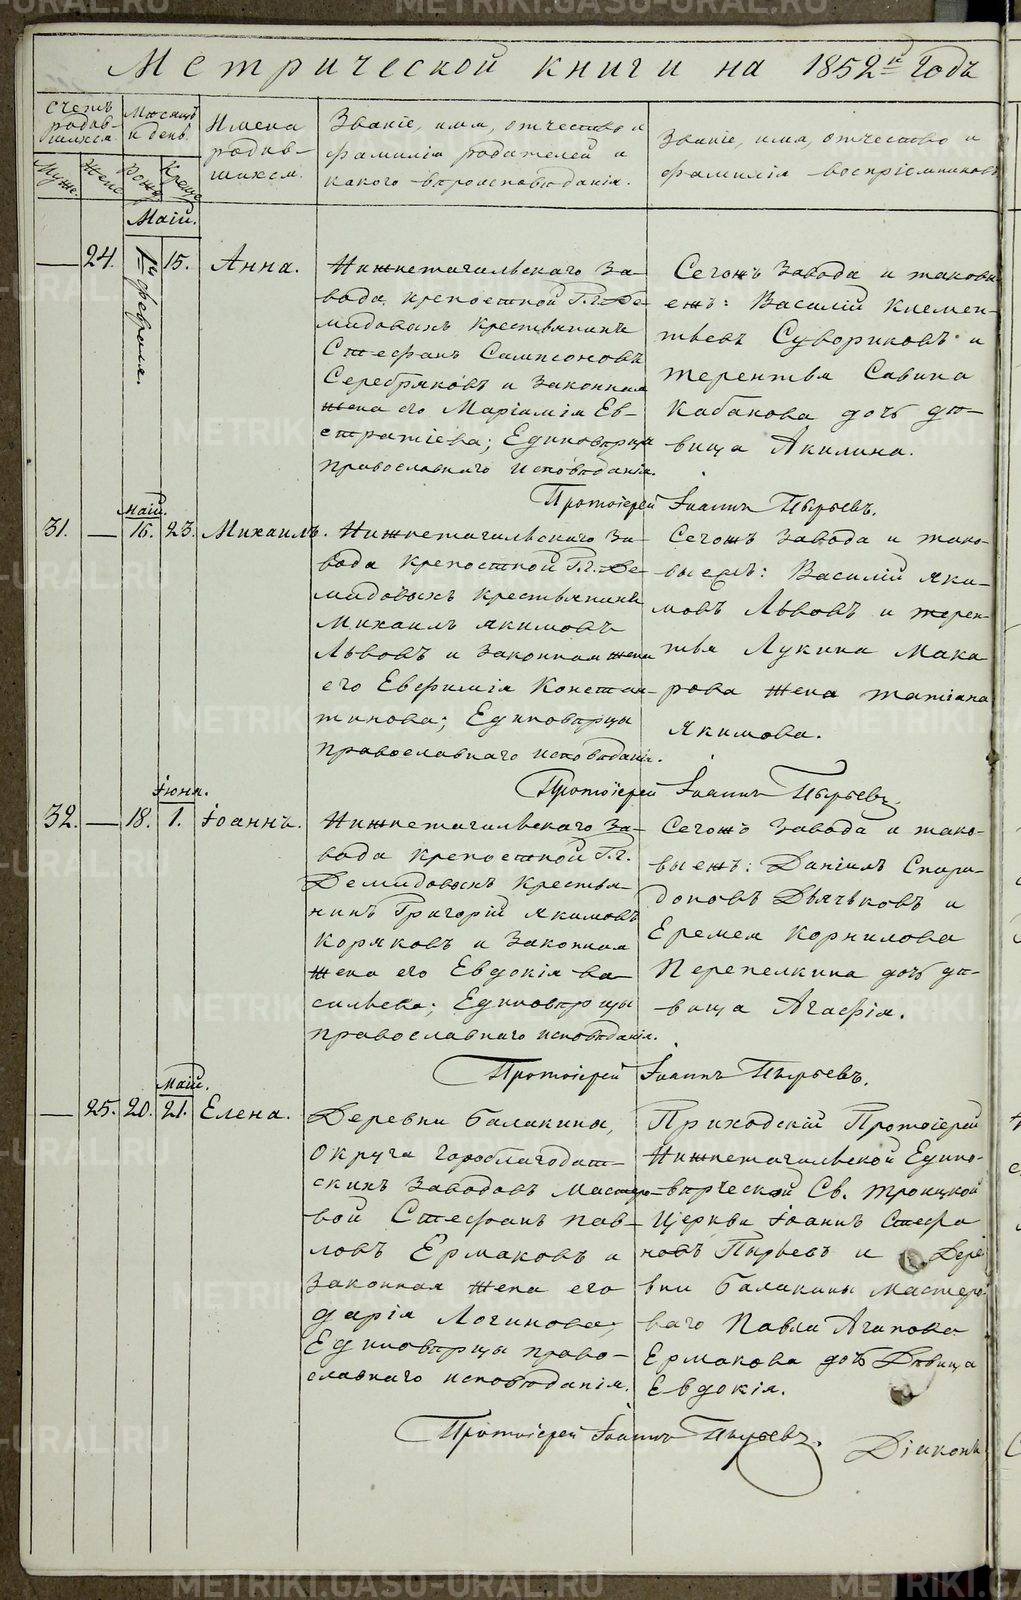 METRIKI.GASO-URAL.RU
Метрической книги на 1852й Годъ
Счетъ родив-шихся
Мужс.
Женс.
Мѣсяцъ и день
Рожд.
Крещ.
Имена родив-шихся.
Званіе, имя, отчество и
фамилія родителей и
какого вѣроисповѣданія.
Званіе, имя, отчество и
фамилія воспріемниковъ
Маій.
— 24. 14 февраля. 15. Анна.
Нижнетагильскаго За-
вода крепостной Г.г. Де-
мидовыхъ крестьянинъ
Стефанъ Сампсоновъ
Серебряковъ и законная
жена его Маріамія Ев-
стратіева; Единовѣрцы
православнаго исповѣданія.
Сегожъ Завода и таковы
ежъ: Василій Клемен-
тьевъ Сувориковъ и
терентья Савина
Кабакова дочь дѣ-
вица Акилина.
Протоіерей Іоаннъ Пырьевъ.
Маій.
31. — 16. 23. Михаилъ.
Нижнетагильскаго За-
вода крепостной Г.г. Де-
мидовыхъ крестьянинъ
Михаилъ якимовъ
Львовъ и законная жена
его Евфимія Констан-
тинова; Единовѣрцы
православнаго исповѣданія.
Сегожъ завода и тако-
выежъ: Василій яки-
мовъ Львовъ и терен-
тья Лукина Мака
рова жена татіана
Якимова.
Протоіерей Іоаннъ Пырьевъ.
Іюня.
32. — 18. 1. Іоаннъ.
Нижнетагильскаго За-
вода крепостной Г.г.
Демидовыхъ крестья-
нинъ Григорій якимовъ
Коряковъ и законная
жена его Евдокія ва-
сильева; Единовѣрцы
православнаго исповѣданія.
Сегожъ завода и тако-
выежъ: Даніилъ Спири-
доновъ Дьячьковъ и
Еремея Корнилова
Перепелкина дочь дѣ-
вица Агафія.
Протоіерей Іоаннъ Пырьевъ.
Маій.
— 25. 20. 21. Елена.
Деревни Балакины,
Округа Гороблагодат-
скихъ Заводовъ Мастеро-
вой Стефанъ пав-
ловъ Ермаковъ и
законная жена его
дарія Логинова;
Единовѣрцы право-
славнаго исповѣданія.
Приходскій Протоіерей
Нижнетагильской Едино-
вѣрческой Св. троицкой
Церкви Іоаннъ Стефа
новъ Пырьевъ и Дере
вни Балакины мастеро
ваго Павла Агапова
Ермакова дочь Дѣвица
Евдокія.
Протоіерей Іоаннъ Пырьевъ.
Діаконъ